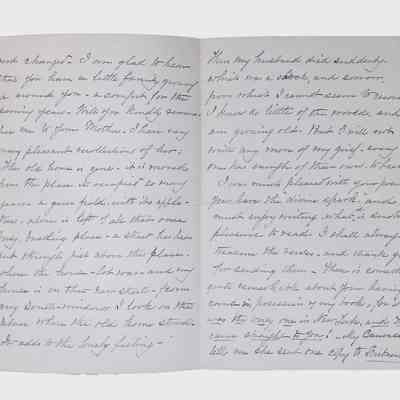 and changes. I am glad to hear
that you have a little family growing
up around you - a comfort for the
coming years. Will you kindly remem-
ber me to your Mother. I have very
many pleasant recollections of her.
The old home is gone - it is removed
from the place it occupied so many
years - a gas field, with its
alone is left of
place - a street has been
cut through just above the place
where the house - and my
house is on that new street - from
my south-windows I look on the
place where the old home stood.
It adds to the lonely feeling -
Then my husband died suddenly
which was a shock, and sorrow
from which I cannot seem to recover
I know so little of the world and
am growing old. But I will not
write any more of my grief - every
one has enough of their own to bear.
I was much pleased with your poems
You have the divine spark, and
much enjoy writing what is so
pleasing to read. I shall always
treasure the verses - and thank you
for sending them - There is something
quite remarkable about your having
come in possession of my book, for it
was the only one in New York, and it
came straight to you! My
tells me she sent one copy to